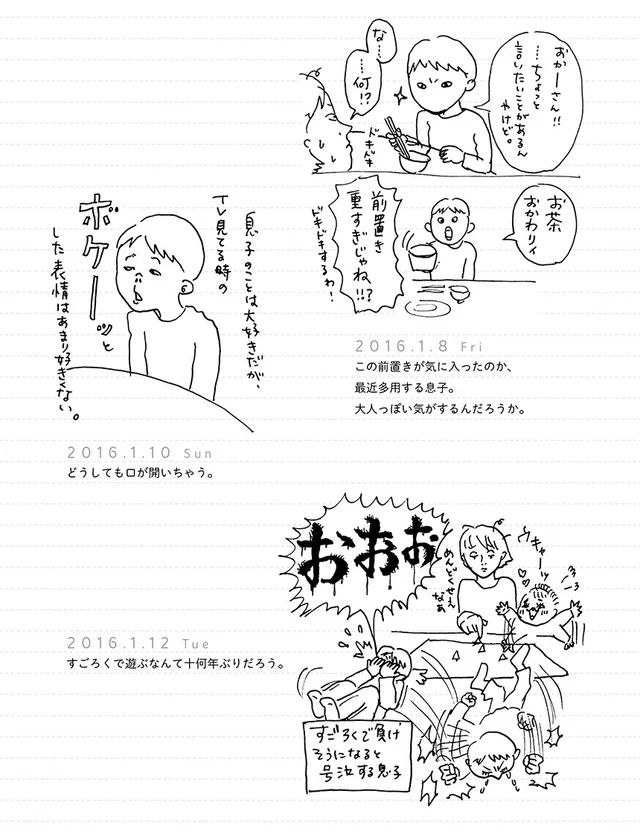 おかーさん!!
…ちょっと
言いたいことがあるん
やけど。
な…
…何!?
ドキドキ
お茶
おかわりィ
前置き
重すぎじゃね!!?
ドキドキするわ!
2016.1.8 Fri
この前置きが気に入ったのか、
最近多用する息子。
大人っぽい気がするんだろうか。
息子のことは大好きだが、
TV見てる時の
ボケーッと
した表情はあまり好きくない。
2016.1.10 Sun
どうしても口が開いちゃう。
おおお
ウキャーッ
めんどくせえ
なぁ
すごろくで負け
そうになると
号泣する息子
2016.1.12 Tue
すごろくで遊ぶなんて十何年ぶりだろう。